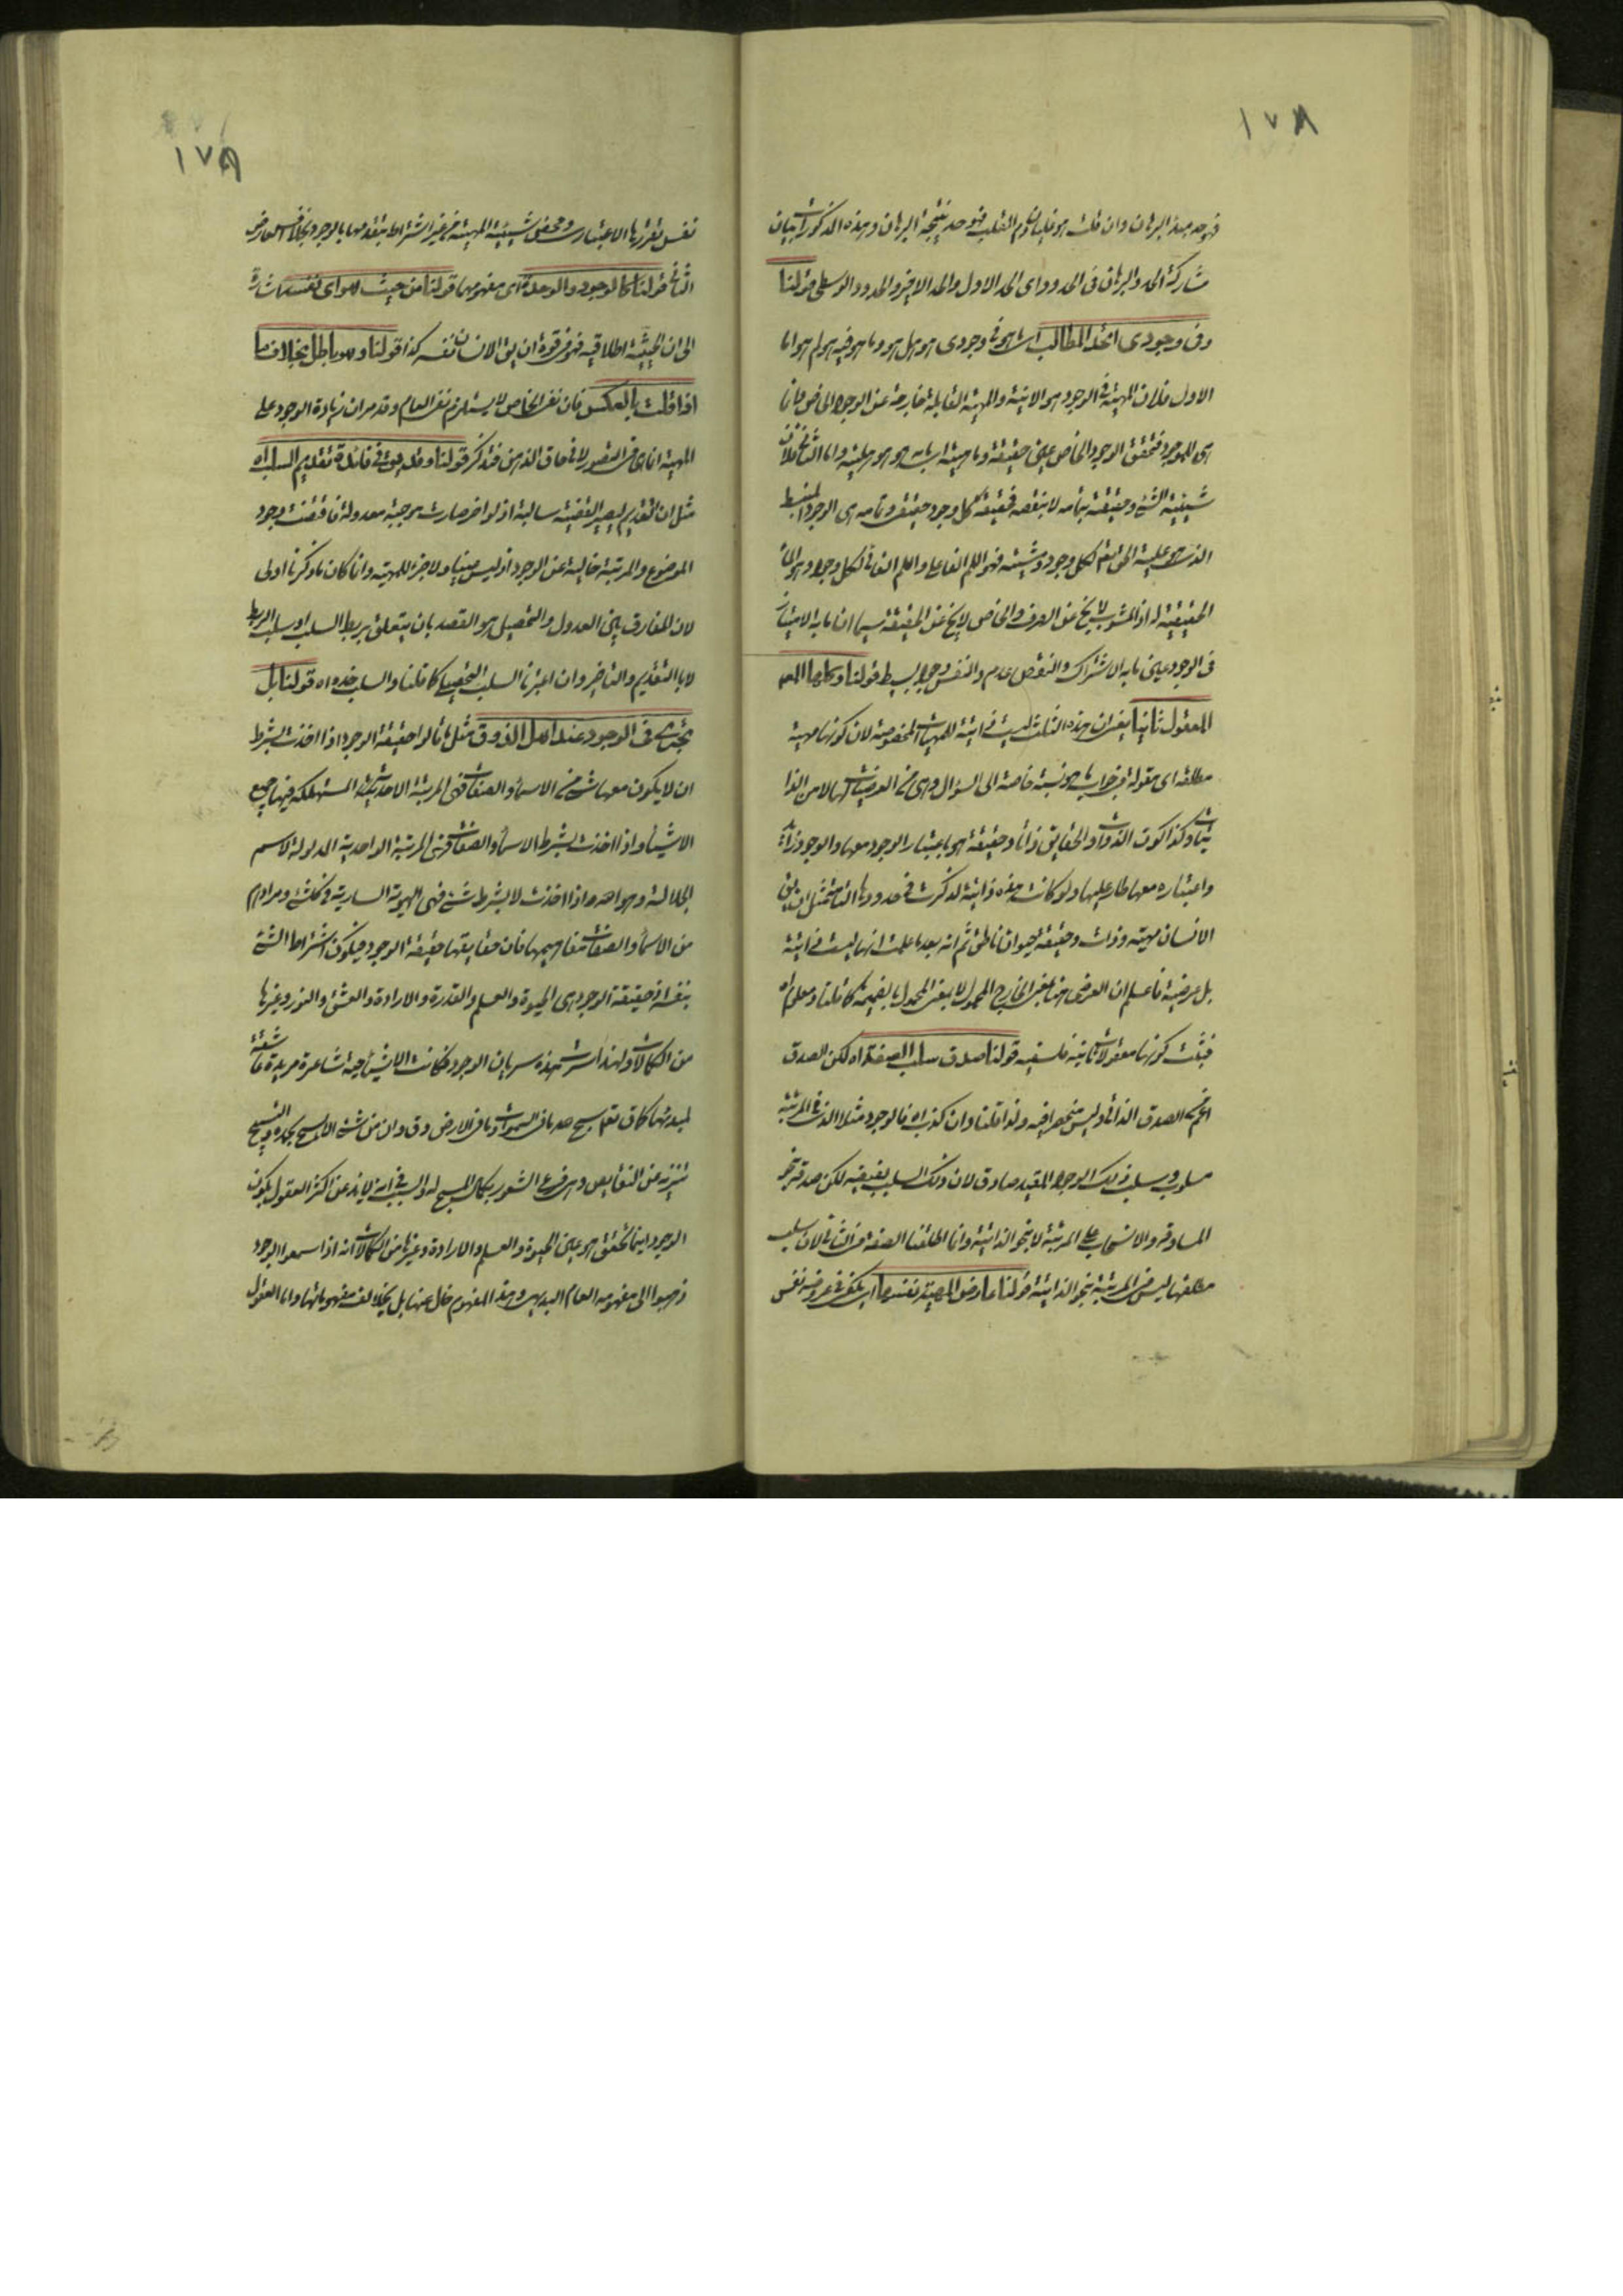 ١٧٨
فهو حد مبدء البرهان وان قلت هو غليان دم القلب فهو حد نتيجة البرهان وهذه المذكورات بيان
مشاركة الحد والبرهان فى الحدود اى الحد الاول والحد الاخير والحدود الوسطى قولنا
وفى وجودى اتحد المطالب اى ما هو فى وجودى هو هل هو وما هو فيه هو لم هو اما
الاول فلان المهية فى الوجود هو الانية والمهية القابلة خارجة عن الوجود الخاص فانا
هى للموجود فتحقق الوجود الخاص عين حقيقة وما هيته اى ما به هو هو هليته واما الثانى فلان
شيئية الشئ وحقيقته بتمامه لا بنقصه فحقيقة كل وجود حقيقى وتمامه هى الوجود المنبسط
الذى هو علية الحق تعم لكل وجود ومشيته فهو اللم الفاعلى واللم الغائى لكل وجود وهو المائ
الحقيقية له اذ المشوب لا يخ عن الصرف والخاص لا يخ عن الحقيقة سيما ان ما به الامتياز
فى الوجود عين ما به الاشتراك والنقص عدم والنفس وجود بسيط قولنا وكلها المه
المعقول ثانيا يعنى ان هذه الثلث ليست ذاتية للمهيات المخصوصة لان كونها مهية
مطلقه اى مقولة فى جواب ما هو نسبة خاصة الى السؤال وهى من العرضيات لها لا من الذا
تيات وكذا كون الذوات والحقايق ذاتا وحقيقة هو باعتبار الوجود معها والوجود زائد
واعتباره معها طار عليها ولو كانت هذه ذاتية لذكرت فى حدودها التامة مثل ان يق
الانسان مهية وذات وحقيقة حيوان ناطق ثم انه بعد ما علمت انها ليست ذاتية
بل عرضية فاعلم ان العرضى هنا بمعنى الخارج المحمول لا بمعنى المحمول بالضميمة كما قلنا ومعلوم اه
فثبت كونها معقولات ثانية فلسفية قولنا صدق سلب الصفة اه لكن الصدق
اعم من الصدق الذاتى وليس منحصرا فيه ولذا قلنا وان كذب اه فالوجود مثلا الذى فى المرتبة
مسلوب وسلب ذلك الوجود المقيد صادق لان ذلك السلب نقيضه لكن صدقه بنحو
المساوقة والانسحاب على المرتبة لا بنحو الذاتية وانما اطلقنا الصفة فى الثانى لان سلب
مطلقها ليس فى المرتبة بنحو الذاتية قولنا عارض المهية نفسها اى يكفى فى عروضه نفس
١٧٩
نفس تقررها الاعتبارى ومحض شيئية المهية من غير اشتراط بتقدمها بالوجود بخلاف العارض
الثانى قولنا كالوجود والوحدة اى مفهومهما قولنا من حيث هو اى نفسه اشارة
الى ان الحيثية اطلاقية فهو فى قوة ان يق الانسان نفسه كذا قولنا وهو باطل بخلاف ما
اذا قلت بالعكس فان نفى الخاص لا يستلزم نفى العام وقد مر ان زيادة الوجود على
المهية انما هى فى التصور لا فى حاق الذهن فتذكر قولنا وقد يق فى فائدة تقديم السلب اه
مثل ان التقديم ليصير القضية سالبة اذ لو اخر صارت موجبة معدولة فاقتضت وجود
الموضوع والمرتبة خالية عن الوجود اذ ليس عينا ولا جزء للمهية وانما كان ما ذكرنا اولى
لان المفارق بين العدول والتحصيل هو القصد بان يتعلق بربط السلب او سلب الربط
لا بالتقديم والتاخير وان اعتبرنا السلب التحصيلى كما قلنا والسلب خذه اه قولنا بل
يجرى فى الوجود عند اهل الذوق مثل ما قالوا حقيقة الوجود اذا اخذت بشرط
ان لا يكون معها شئ من الاسماء والصفات فهى المرتبة الاحدية المستهلكه فيها جميع
الاشياء واذا اخذت بشرط الاسماء والصفات فهى المرتبة الواحدية المدلولة لاسم
الجلالة وهو الله واذا اخذت لا بشرط شئ فهى الهوية السارية فى كل شئ ومرادهم
من الاسماء والصفات مفاهيمها فان حقايقها حقيقة الوجود فيكون اشتراط الشئ
بنفسه اذ حقيقة الوجود هى الحيوة والعلم والقدرة والارادة والعشق والنور وغيرها
من الكمالات ولهذا سرت هذه سريان الوجود فكانت الاشياء حية شاعرة مريدة عاشقة
لمبدئها كما ق تعم يسبح لله ما فى السموات وما فى الارض وق وان من شئ الا يسبح بحمده والتسبيح
تنزيه عن النقايص وهو فرع الشعور بكمال المسبح له والسبب فى انه لا يذعن اكثر العقول بكون
الوجود اينما تحقق هو عين الحيوة والعلم والارادة وغيرها من الكمالات انه اذا سمعوا الوجود
ذهبوا الى مفهومه العام البديهى وهذا المفهوم خال عنها بل يخالف مفهوماتها واما العقول